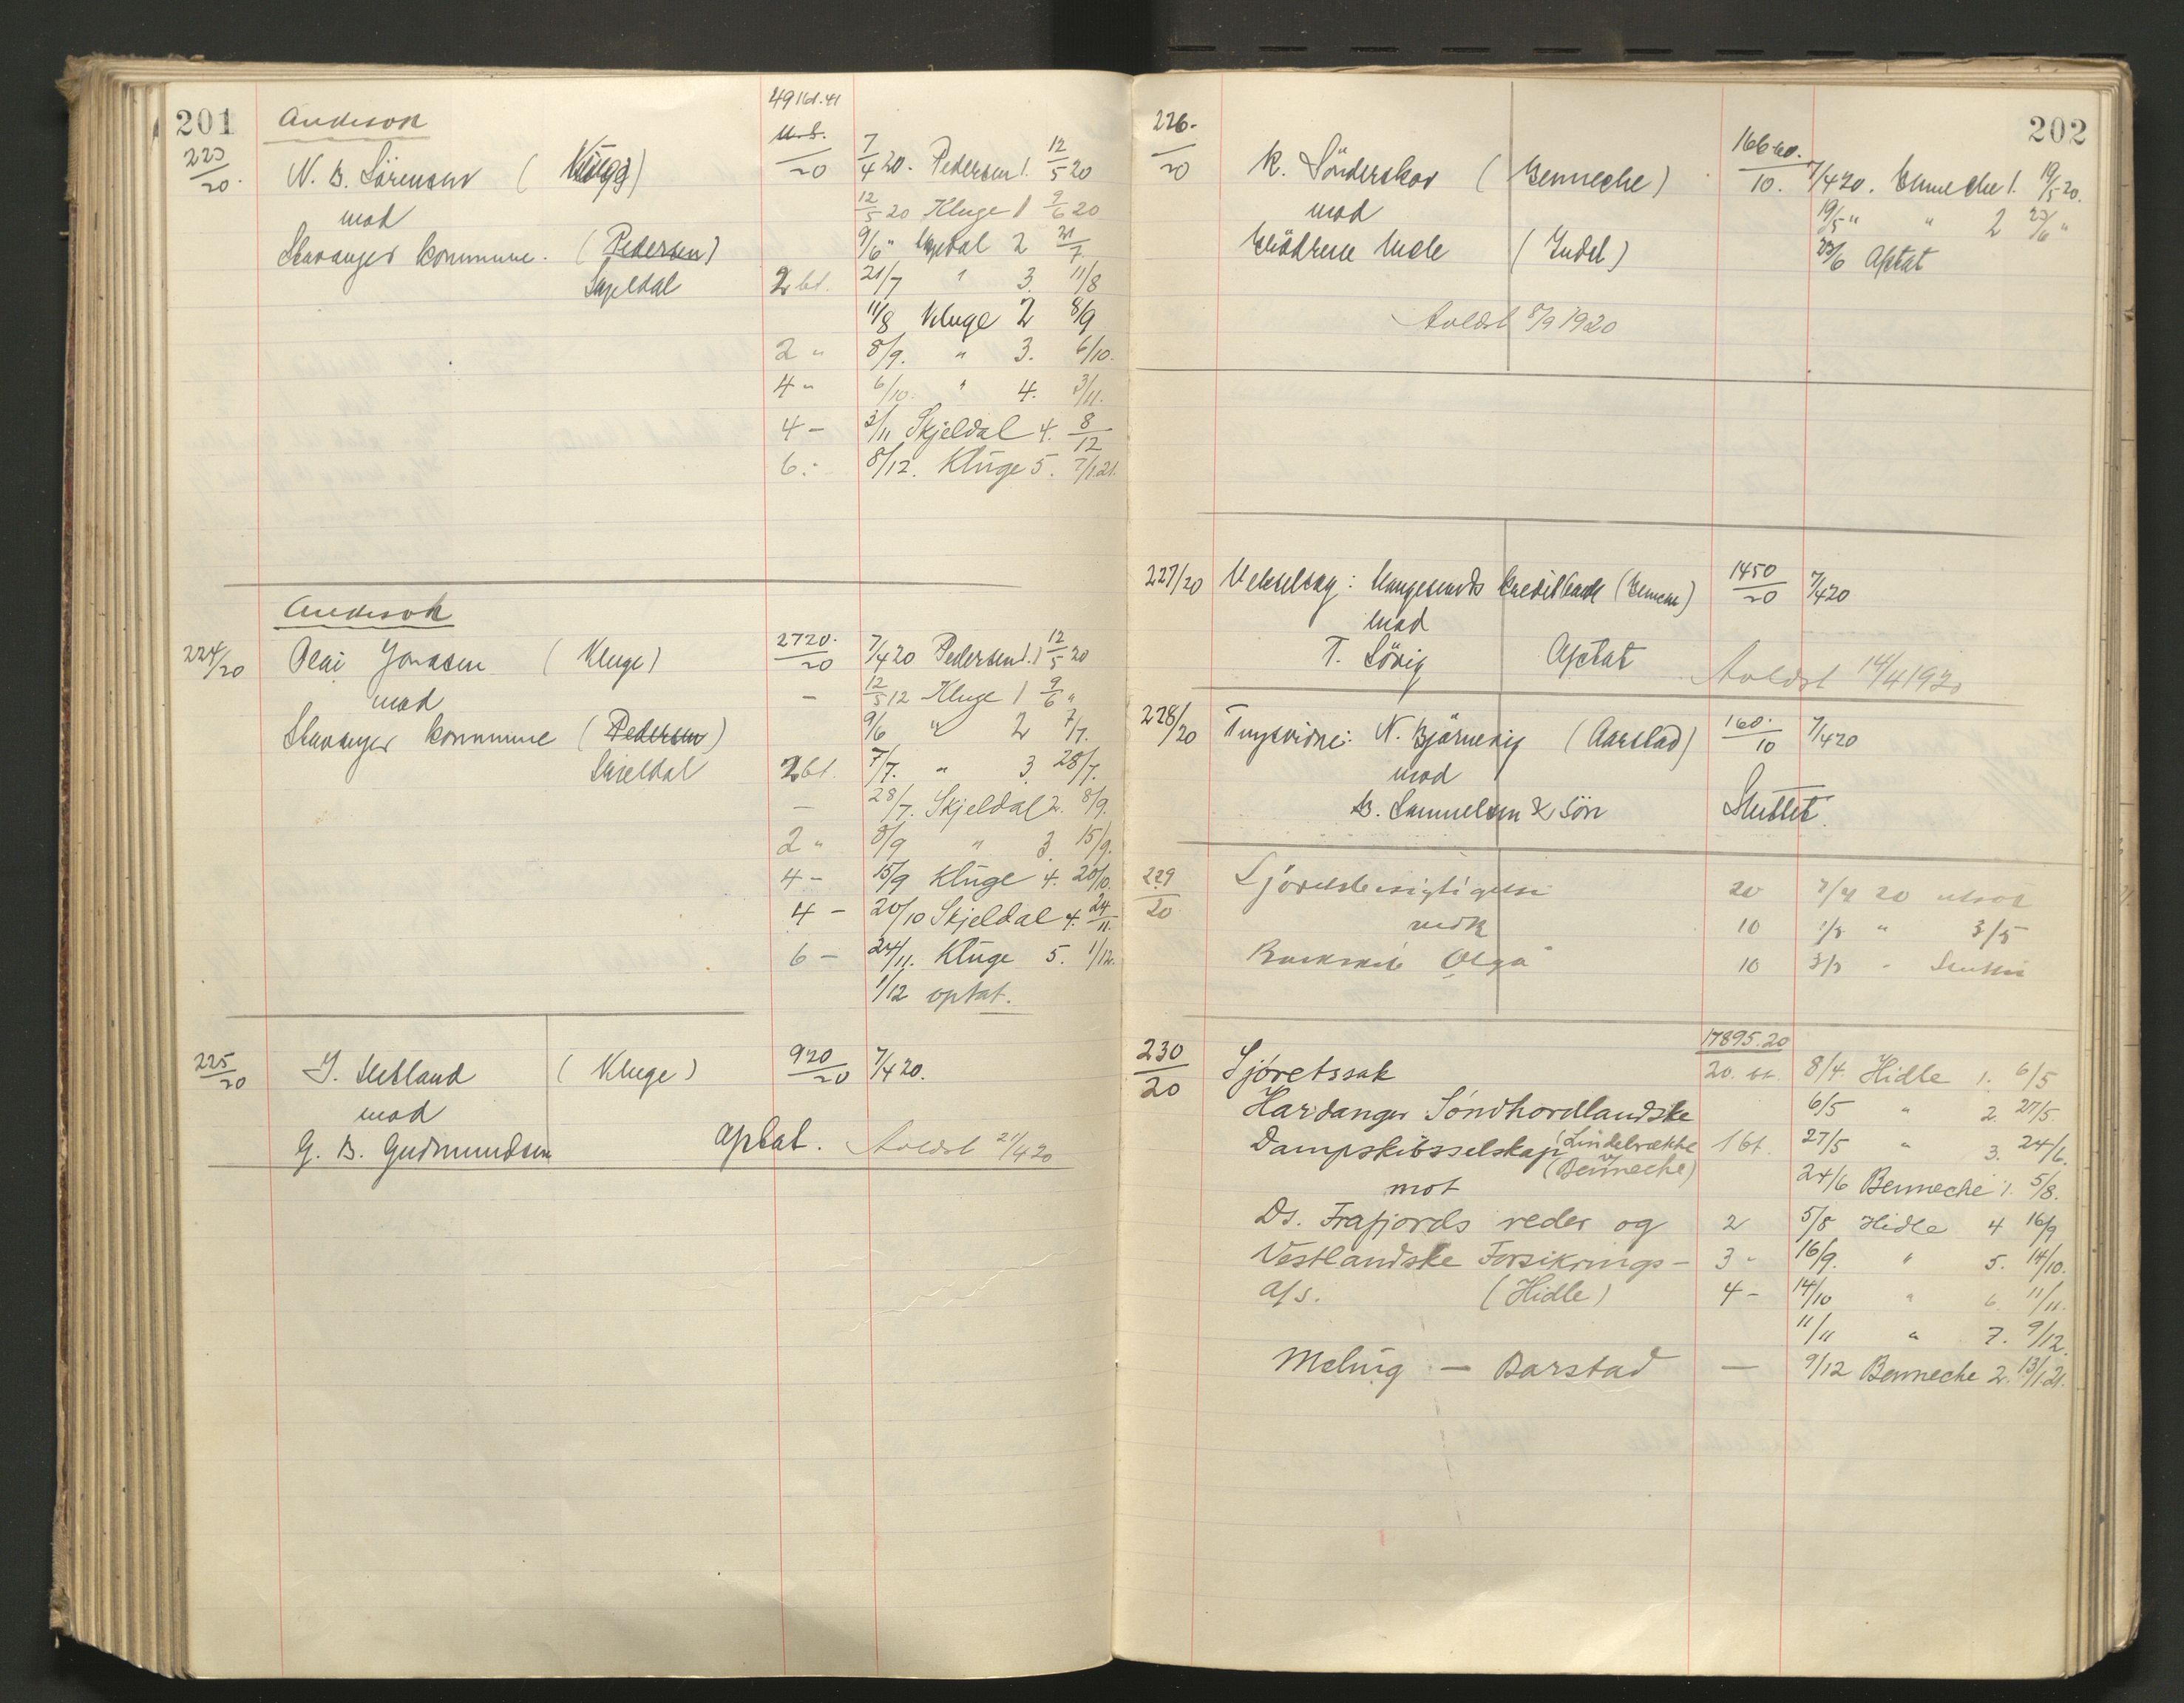 201
223/20.
N. B. Sörensen (Kluge)
mod
Stavanger kommune. (Pedersen)
Skjeldal
4916.41
20
7/4 20. Pedersen 1. 12/5 20
12/5 20 Kluge 1 9/6 20
9/6 " Skjeldal 2 21/7.
2 bt. 21/7 " 3. 11/8
11/8 Kluge 2 8/9
2 " 8/9. " 3. 6/10.
4 " 6/10. " 4. 3/11.
4 - 3/11 Skjeldal 4. 8/12
6 - 8/12. Kluge 5. 7/1.21.
224/20
Olai Jonassen (Kluge)
mod
Stavanger kommune (Pedersen)
Skjeldal
2720./20 7/4 20 Pedersen 1. 12/5 20
- 12/5 12 Kluge 1 9/6 "
9/6 " 2 7/7.
2 bt. 7/7. " 3. 28/7.
- 28/7. Skjeldal 2. 8/9.
2 " 8/9 " 3. 15/9.
4 - 15/9 Kluge 4. 20/10.
4 - 20/10 Skjeldal 4. 24/11.
6 - 24/11. Kluge 5. 1/12.
1/12 optat.
225/20
J. Hetland (Kluge) 920/20 7/4 20.
mod
G. B. Gudmundsen optat. Avldst 21/4 20
202
226./20
K. Sönderskov (Benneche)
mod
Brödrene
166 60./10. 7/4 20. Benneche 1. 19/5 20.
19/5 " " 2 23/6 "
23/6 Optat
Avldst 8/9 1920
227/20 Vekselsag: Haugesunds Kreditbank 1450/20 7/4 20
mod
T. Sövig Optat Avldst 14/4 1920
228/20 Tingsvidne: N. Bjärnevig (Aarstad) 160./10 7/4 20
mod
B. Samuelsen & Sön Sluttet.
229/20
Sjørettsbesigtigelse 20 7/4 20 utsat
vedk 10 " 3/5
Barkskib Olga 10 3/5 - Sluttet
230/20
Sjøretssak
Hardanger Søndhordlandske
Dampskibsselskap (Lindebrække
v/
(Benneche)
mot
Ds. Frafjords reder og
Vestlandske Forsikrings-
A/s. (Hidle)
Meling - Barstad
17895.20
20. bt. 8/4. Hidle 1. 6/5
6/5 " 2. 27/5.
1 bt. 27/5 " 3. 24/6.
24/6 Benneche 1. 5/8.
2 5/8 Hidle 4 16/9
3 - 16/9. " 5. 14/10.
4 - 14/10 " 6. 11/11.
11/11 " 7. 9/12.
- 9/12 Benneche 2. 13/1.21.